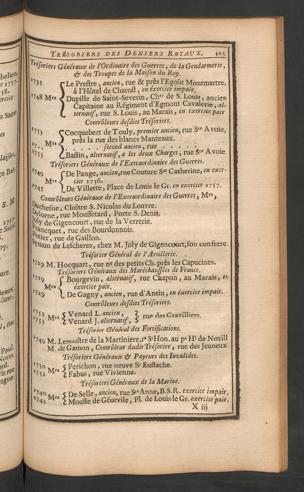 TRÉSORIERS DES DENIERS ROYAUX. 325
Trésoriers Généraux de l'Ordinaire des Guerres, de la Gendarmerie,
& des Troupes de la Maison du Roy.
1735 Le Prestre, ancien, rue & près l'Egout Montmartre,
à l'Hôtel de Charost, en exercice impair,
1748 Mrs Dupille de Saint-Severin, Cher de S. Louis, ancien
Capitaine au Régiment d'Egmont Cavalerie, al-
ternatif, rue S. Louis, au Marais, en exercice pair
Contrôleurs desdits Trésoriers.
1753 Cocquebert de Touly, premier ancien, rue Ste Avoie,
près la rue des blancs Manteaux.
Mrs . . . . . second ancien, rue . . . . .
1753 Bastin, alternatif, a les deux Charges, rue Ste Avoie.
Trésoriers Généraux de l'Extraordinaire des Guerres.
1749 De Pange, ancien, rue Couture Ste Catherine, en exer-
Mrs cice 1756.
1745 De Villette, Place de Louis le Gr. en exercice 1757.
Contrôleurs Généraux de l'Extraordinaire des Guerres, Mrs,
Duchesne, Cloître S. Nicolas du Louvre.
Delorme, rue Mouffetard, Porte S. Denis.
Joly de Gigencourt, rue de la Verrerie.
Francquet, rue des Bourdonnois.
Potier, rue de Gaillon.
Eymon de Lescheres, chez M. Joly de Gigencourt, son confrere.
Trésorier Général de l'Artillerie.
1729 M. Hocquart, rue ne des petits Ch. près les Capucines.
Trésoriers Généraux des Maréchaussées de France.
1729 Bourgevin, alternatif, rue Chapon, au Marais, en
Mrs exercice pair.
1749 De Gagny, ancien, rue d'Antin, en exercice impair.
Contrôleurs desdits Trésoriers.
1753 Mrs Venard L. ancien,
1753 Venard J. alternatif, rue des Gravilliers.
Trésorier Général des Fortifications.
1749 M. Lemaistre de la Martiniere, r. St Hon. au pt H. de Noaill
M. de Gamon, Contrôleur dudit Trésorier, rue des Jeuneux
Trésoriers Généraux & Payeurs des Invalides.
Mrs Perichon, rue neuve St Eustache.
1752 Fabus, rue Vivienne.
Trésoriers Généraux de la Marine.
1749 Mrs De Selle, ancien, rue Ste Anne, B. S. R. exercice impair.
1742 Moufle de Géorville, Pl. de Louis le Gr. exercice pair.
X iij